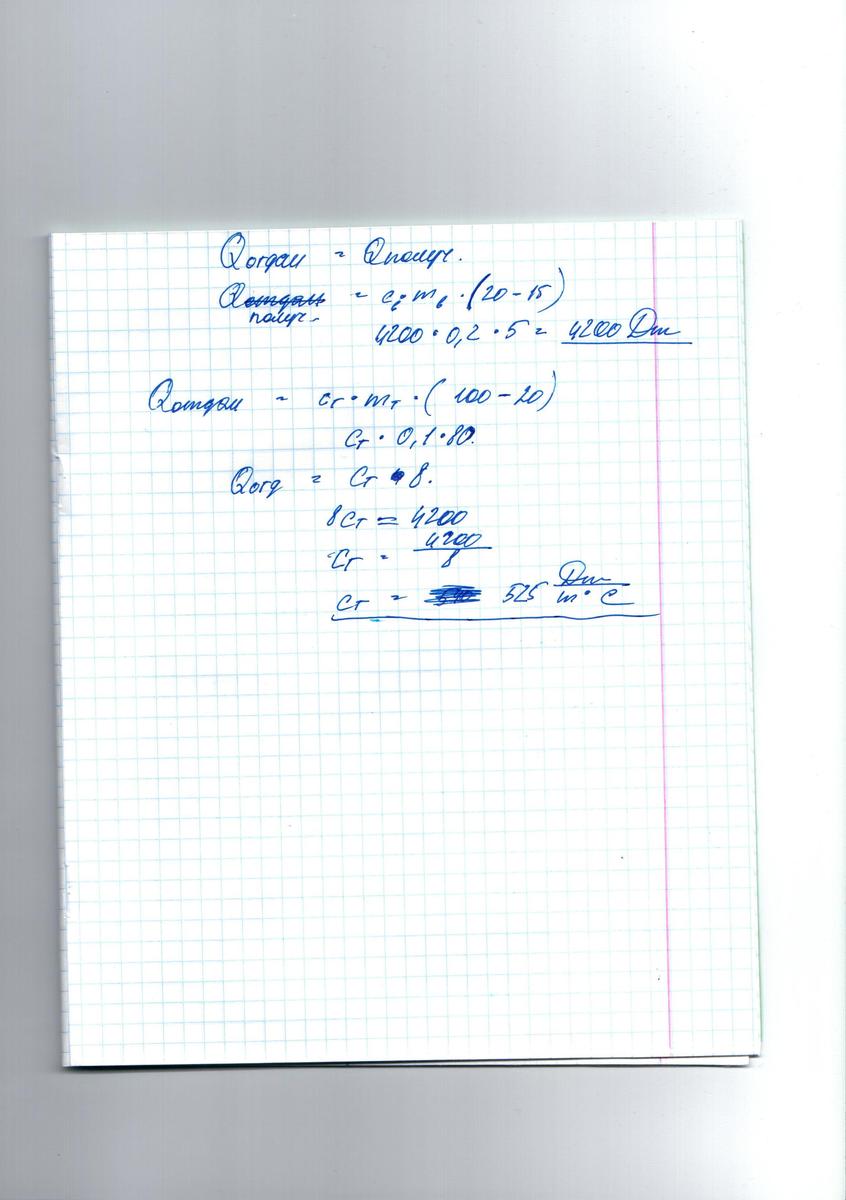 Qотдан = Qполуч.
Qполуч. = cв mв · (20 - 15)
4200 · 0,2 · 5 = 4200 Дж
Qотдан = cт · mт · (100 - 20)
cт · 0,1 · 80.
Qотд = cт · 8.
8cт = 4200
cт = 4200/8
cт = 525 Дж/m° C